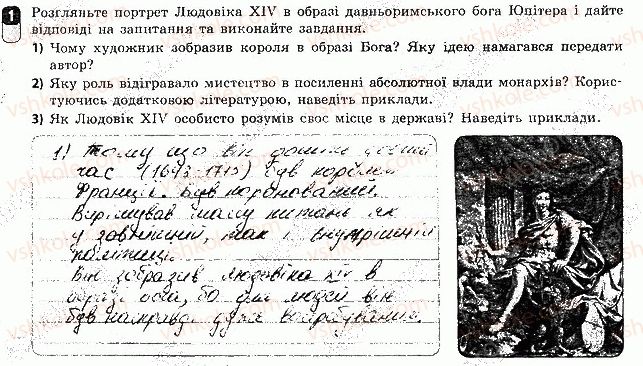 1 Розгляньте портрет Людовіка XIV в образі давньоримського бога Юпітера і дайте
відповіді на запитання та виконайте завдання.
1) Чому художник зобразив короля в образі Бога? Яку ідею намагався передати
автор?
2) Яку роль відігравало мистецтво в посиленні абсолютної влади монархів? Корис-
туючись додатковою літературою, наведіть приклади.
3) Як Людовік XIV особисто розумів своє місце в державі? Наведіть приклади.
1) Тому що він довгий
час (1643-1715) був королем
Франції. Був коронований.
Вирішував масу питань як
у зовнішній, так і внутрішній
політиці.
Він зобразив Людовіка XIV в
образі бога, бо для людей він
був насправді дуже